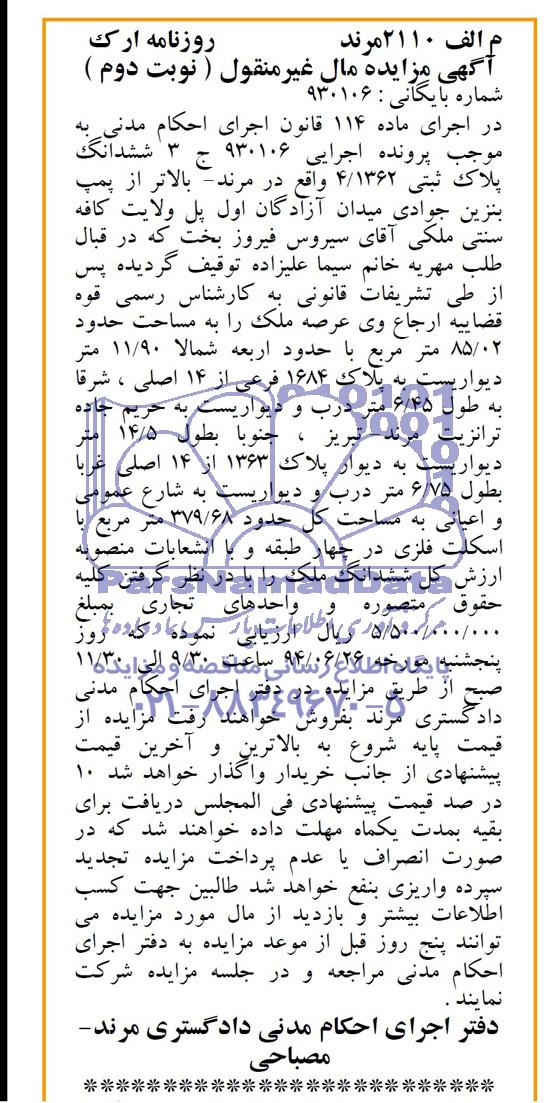 م الف ۲۱۱۰مرند روزنامه ارک
آگهی مزایده مال غیرمنقول ( نوبت دوم )
شماره بایگانی : ۹۳۰۱۰۶
در اجرای ماده ۱۱۴ قانون اجرای احکام مدنی به
موجب پرونده اجرایی ۹۳۰۱۰۶ ج ۳ ششدانگ
پلاک ثبتی ۴/۱۳۶۲ واقع در مرند- بالاتر از پمپ
بنزین جوادی میدان آزادگان اول پل ولایت کافه
سنتی ملکی آقای سیروس فیروز بخت که در قبال
طلب مهریه خانم سیما علیزاده توقیف گردیده پس
از طی تشریفات قانونی به کارشناس رسمی قوه
قضاییه ارجاع وی عرصه ملک را به مساحت حدود
۸۵/۰۲ متر مربع با حدود اربعه شمالا ۱۱/۹۰ متر
دیواریست به پلاک ۱۶۸۴ فرعی از ۱۴ اصلی ، شرقا
به طول ۶/۴۵ متر درب و دیواریست به حریم جاده
ترانزیت مرند- تبریز ، جنوبا بطول ۱۴/۵ متر
دیواریست به دیوار پلاک ۱۳۶۳ از ۱۴ اصلی غربا
بطول ۶/۷۵ متر درب و دیواریست به شارع عمومی
و اعیانی به مساحت کل حدود ۳۷۹/۶۸ متر مربع با
اسکلت فلزی در چهار طبقه و با انشعابات منصوبه
ارزش کل ششدانگ ملک را با در نظر گرفتن کلیه
ParsNamadData
حقوق متصوره و واحدهای تجاری بمبلغ
مرکز فرآوری اطلاعات پارس نماد داده ها
۵/۵۰۰/۰۰۰/۰۰۰ ریال ارزیابی نموده که روز
پنجشنبه مورخه ۹۴/۰۶/۲۶ ساعت ۹/۳۰ الی ۱۱/۳۰
پایگاه اطلاع رسانی مناقصه و مزایده
صبح از طریق مزایده در دفتر اجرای احکام مدنی
۰۲۱-۸۸۳۴۹۶۷۰-۵
دادگستری مرند بفروش خواهند رفت مزایده از
قیمت پایه شروع به بالاترین و آخرین قیمت
پیشنهادی از جانب خریدار واگذار خواهد شد ۱۰
در صد قیمت پیشنهادی فی المجلس دریافت برای
بقیه بمدت یکماه مهلت داده خواهند شد که در
صورت انصراف یا عدم پرداخت مزایده تجدید
سپرده واریزی بنفع خواهد شد طالبین جهت کسب
اطلاعات بیشتر و بازدید از مال مورد مزایده می
توانند پنج روز قبل از موعد مزایده به دفتر اجرای
احکام مدنی مراجعه و در جلسه مزایده شرکت
نمایند .
دفتر اجرای احکام مدنی دادگستری مرند-
مصباحی